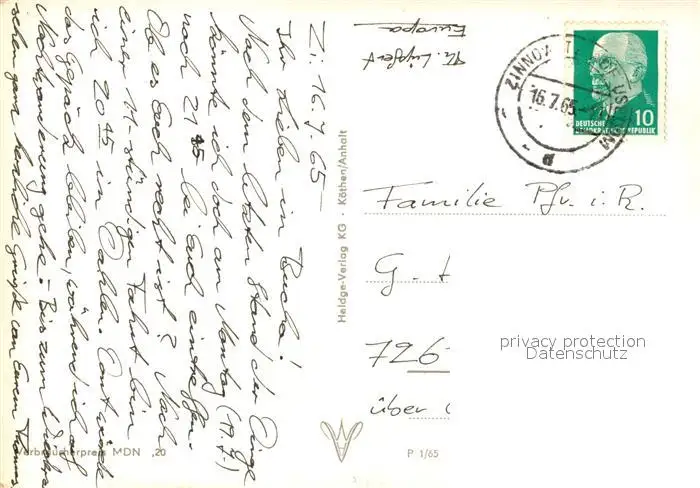 Z., 16.7.65
Ihr Lieben in Bucha!
Nach dem letzten Stand der Dinge
könnte ich doch am Montag (19.7.)
nach 21 45 bei euch eintreffen.
Ob es Euch recht ist? Nach
einer 14-stündigen Fahrt bin
ich 20 45 in Dahlen. Entweder
das Gepäck bleibt, während ich auf
gehe. Bis zum
herzliche Grüße von Eurem Thomas
Europa
ZINNOWITZ
16.7.65
USEDOM
10
DEUTSCHE
DEMOKRATISCHE REPUBLIK
Heldge-Verlag KG · Köthen/Anhalt
Familie Pfr. i. R.
G. t
726
über
privacy protection
Datenschutz
Verbraucherpreis MDN ,20
P 1/65